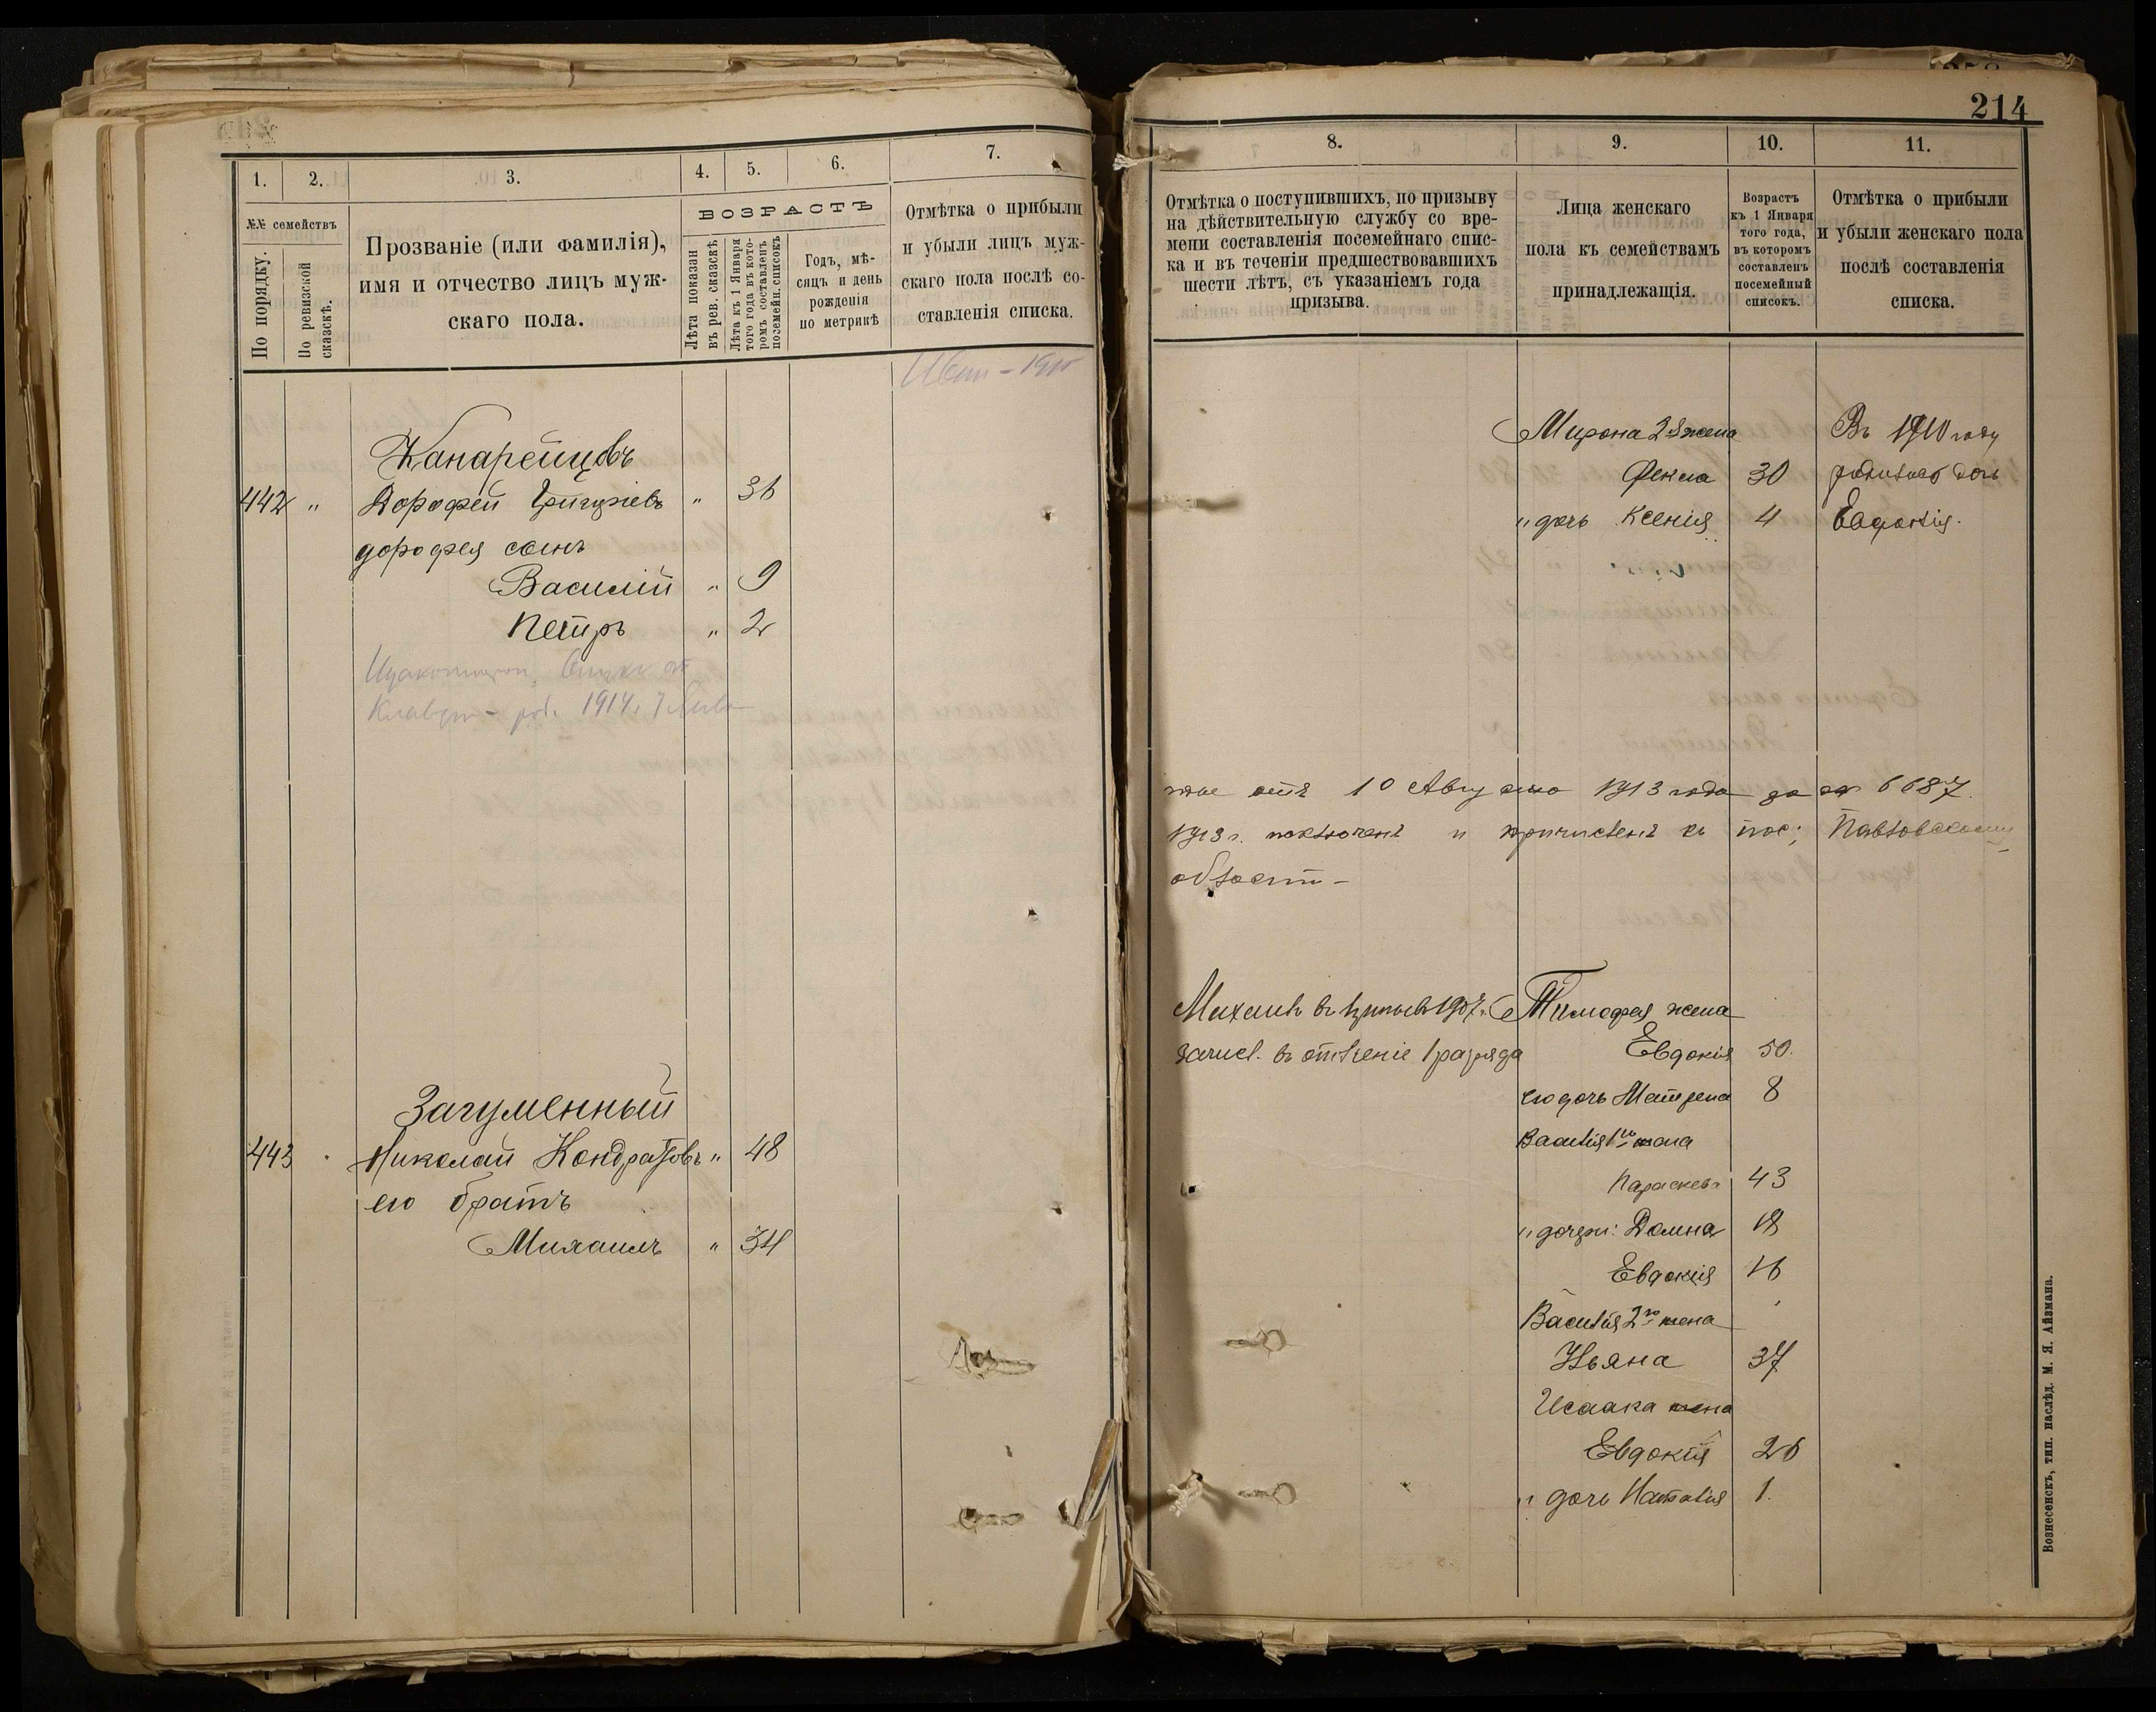 1.
2.
3.
4.
5.
6.
7.
№№ семействъ
По порядку.
По ревизской сказскѣ.
Прозваніе (или фамилія),
имя и отчество лицъ муж-
скаго пола.
ВОЗРАСТЪ
Лѣта показан
въ рев. сказскѣ
Лѣта къ 1 Января
того года въ кото-
ромъ составленъ
посемейн. списокъ
Годъ, мѣ-
сяцъ и день
рожденія
по метрикѣ
Отмѣтка о прибыли
и убыли лицъ муж-
скаго пола послѣ со-
ставленія списка.
Канарейцовъ
442 " Дорофей Григорьевъ " 36
дорофея сынъ
Василій " 9
Петръ " 2
1914
Загуменный
443 Николай Кондратовъ " 48
его братъ
Михаилъ " 34
214
8.
9.
10.
11.
Отмѣтка о поступившихъ, по призыву
на дѣйствительную службу со вре-
мени составленія посемейнаго спис-
ка и въ теченіи предшествовавшихъ
шести лѣтъ, съ указаніемъ года
призыва.
Лица женскаго
пола къ семействамъ
принадлежащія.
Возрастъ
къ 1 Января
того года,
въ которомъ
составленъ
посемейный
списокъ.
Отмѣтка о прибыли
и убыли женскаго пола
послѣ составленія
списка.
Мирона 2й жена Въ 1910 году
Фекла 30 родилась дочь
" дочь Ксенія 4 Евдокія.
отъ 10 Августа 1913 года за № 6687
1913 г. исключенъ и причисленъ къ пос; Павловскому
Михаилъ въ 1907 г. Тимофея жена
зачисл. въ ополченіе 1 разряда Евдокія 50.
его дочь Матрена 8
Василія 1го жена
Параскева 43
" дочери: Домна 18
Евдокія 16
Василія 2го жена
Ульяна 37
Исаака жена
Евдокія 26
" дочь Наталія 1.
Вознесенскъ, тип. наслѣд. М. Я. Айзмана.